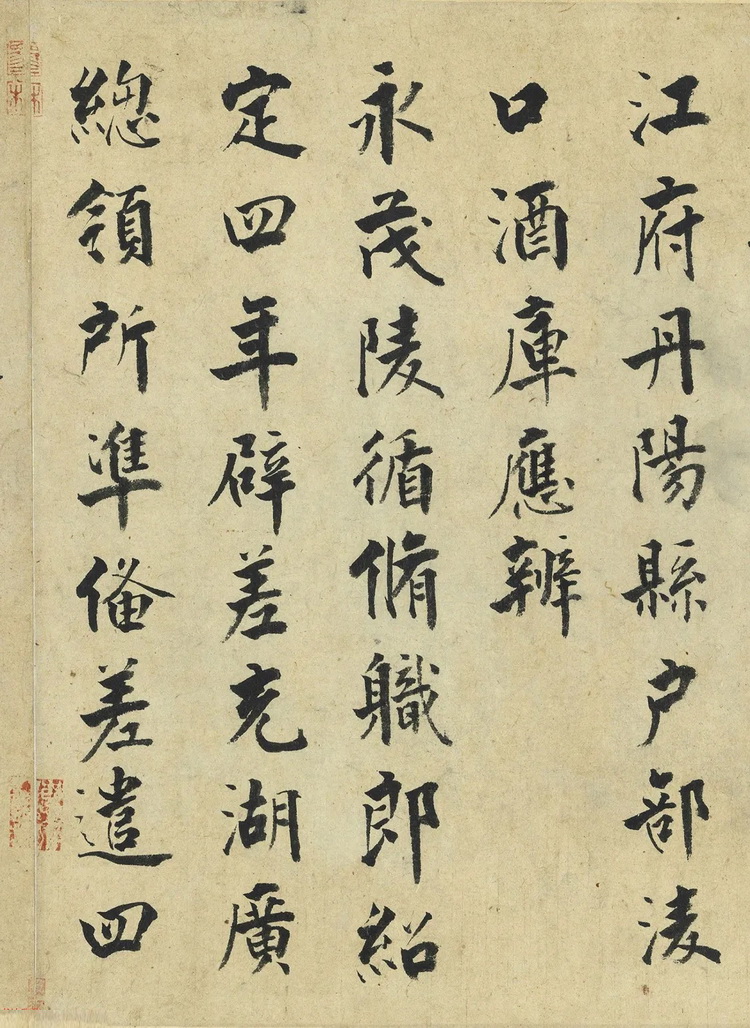 江府丹陽縣户部淩
口酒庫應辧
永茂陵循脩職郎紹
定四年辟差充湖廣
總領所準備差遣四